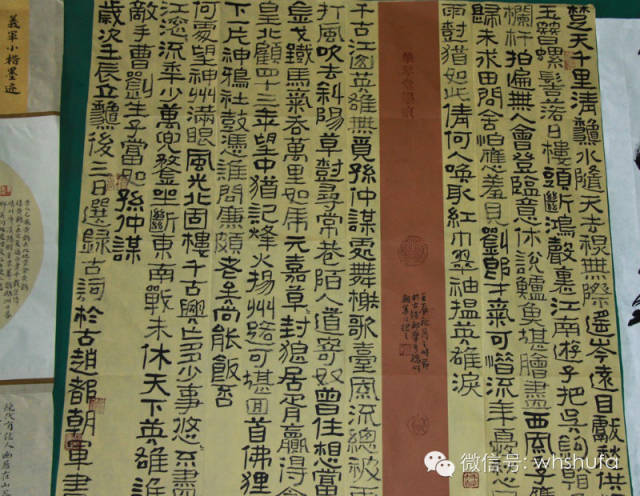 楚天千里清龝水隨天去龝無際遥岑遠目獻愁供
玉簪螺髻落日樓頭斷鴻聲裏江南遊子把吳鉤
欄杆拍遍無人會登臨意休說鱸魚堪膾盡西風季
歸未求田問舍怕應羞見劉郎才氣可惜流年憂
雨樹猶如此倩何人喚取紅巾翠袖揾英雄淚
千古江山英雄無覓孫仲謀處舞榭歌臺風流總被
打風吹去斜陽草樹尋常巷陌人道寄奴曾住想當
金戈鐵馬氣吞萬里如虎元嘉草封狼居胥贏得倉
皇北顧四十三年望中猶記烽火揚州路可堪回首佛狸
下片神鴉社鼓憑誰問廉頗老矣尚能飯否
何處望神州滿眼風光北固樓千古興亡多少事悠悠盡
江滚流年少萬兜鍪坐斷東南戰未休天下英雄誰
敵手曹劉生子當如孫仲謀
歲次壬辰立龝後三日選録古詞於古趙都朝軍書
義軍小楷墨迹
微信号: whshufa